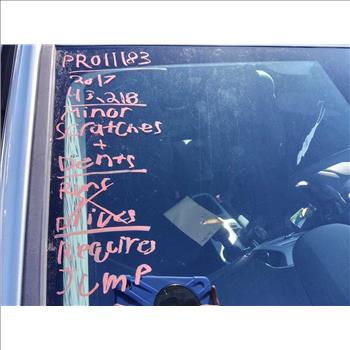 PRO11183
2017
43,218
Minor
Scratches
+
Dents
Runs
Drives
Requires
Jump